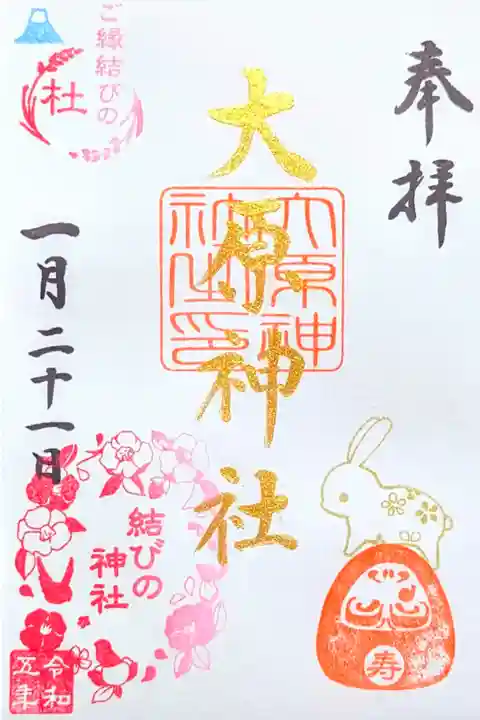 奉拝
大原神社
大原神社之印
ご縁結びの
杜
一月二十一日
結びの
神社
令和
五年
寿